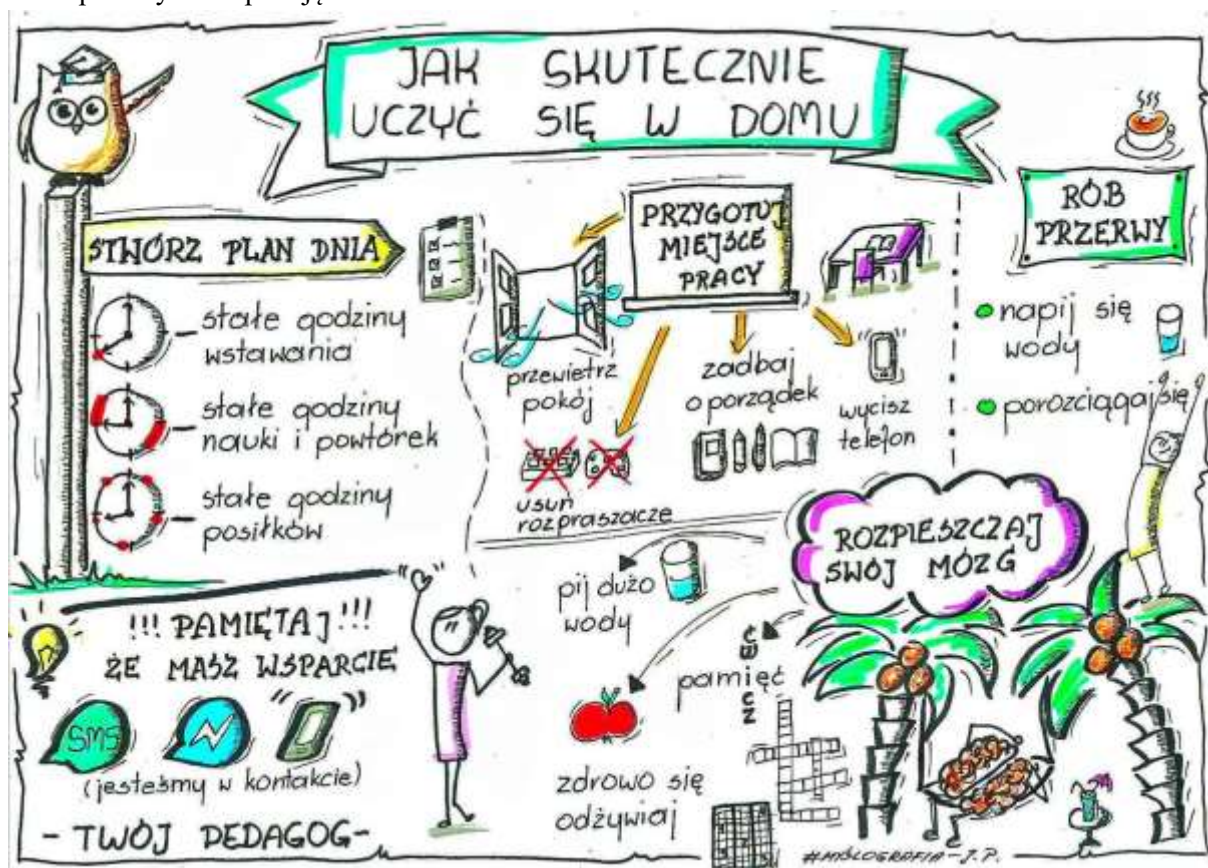 JAK SKUTECZNIE
UCZYĆ SIĘ W DOMU
STWÓRZ PLAN DNIA
stałe godziny
wstawania
stałe godziny
nauki i powtórek
stałe godziny
posiłków
PRZYGOTUJ
MIEJSCE
PRACY
przewietrz
pokój
usuń
rozpraszacze
zadbaj
o porządek
wycisz
telefon
RÓB
PRZERWY
napij się
wody
porozciągaj się
ROZPIESZCZAJ
SWÓJ MÓZG
pij dużo
wody
ĆWICZ
pamięć
zdrowo się
odżywiaj
!!! PAMIĘTAJ !!!
ŻE MASZ WSPARCIE
SMS
(jesteśmy w kontakcie)
- TWÓJ PEDAGOG -
#MYŚLOGRAFIA - J.P.